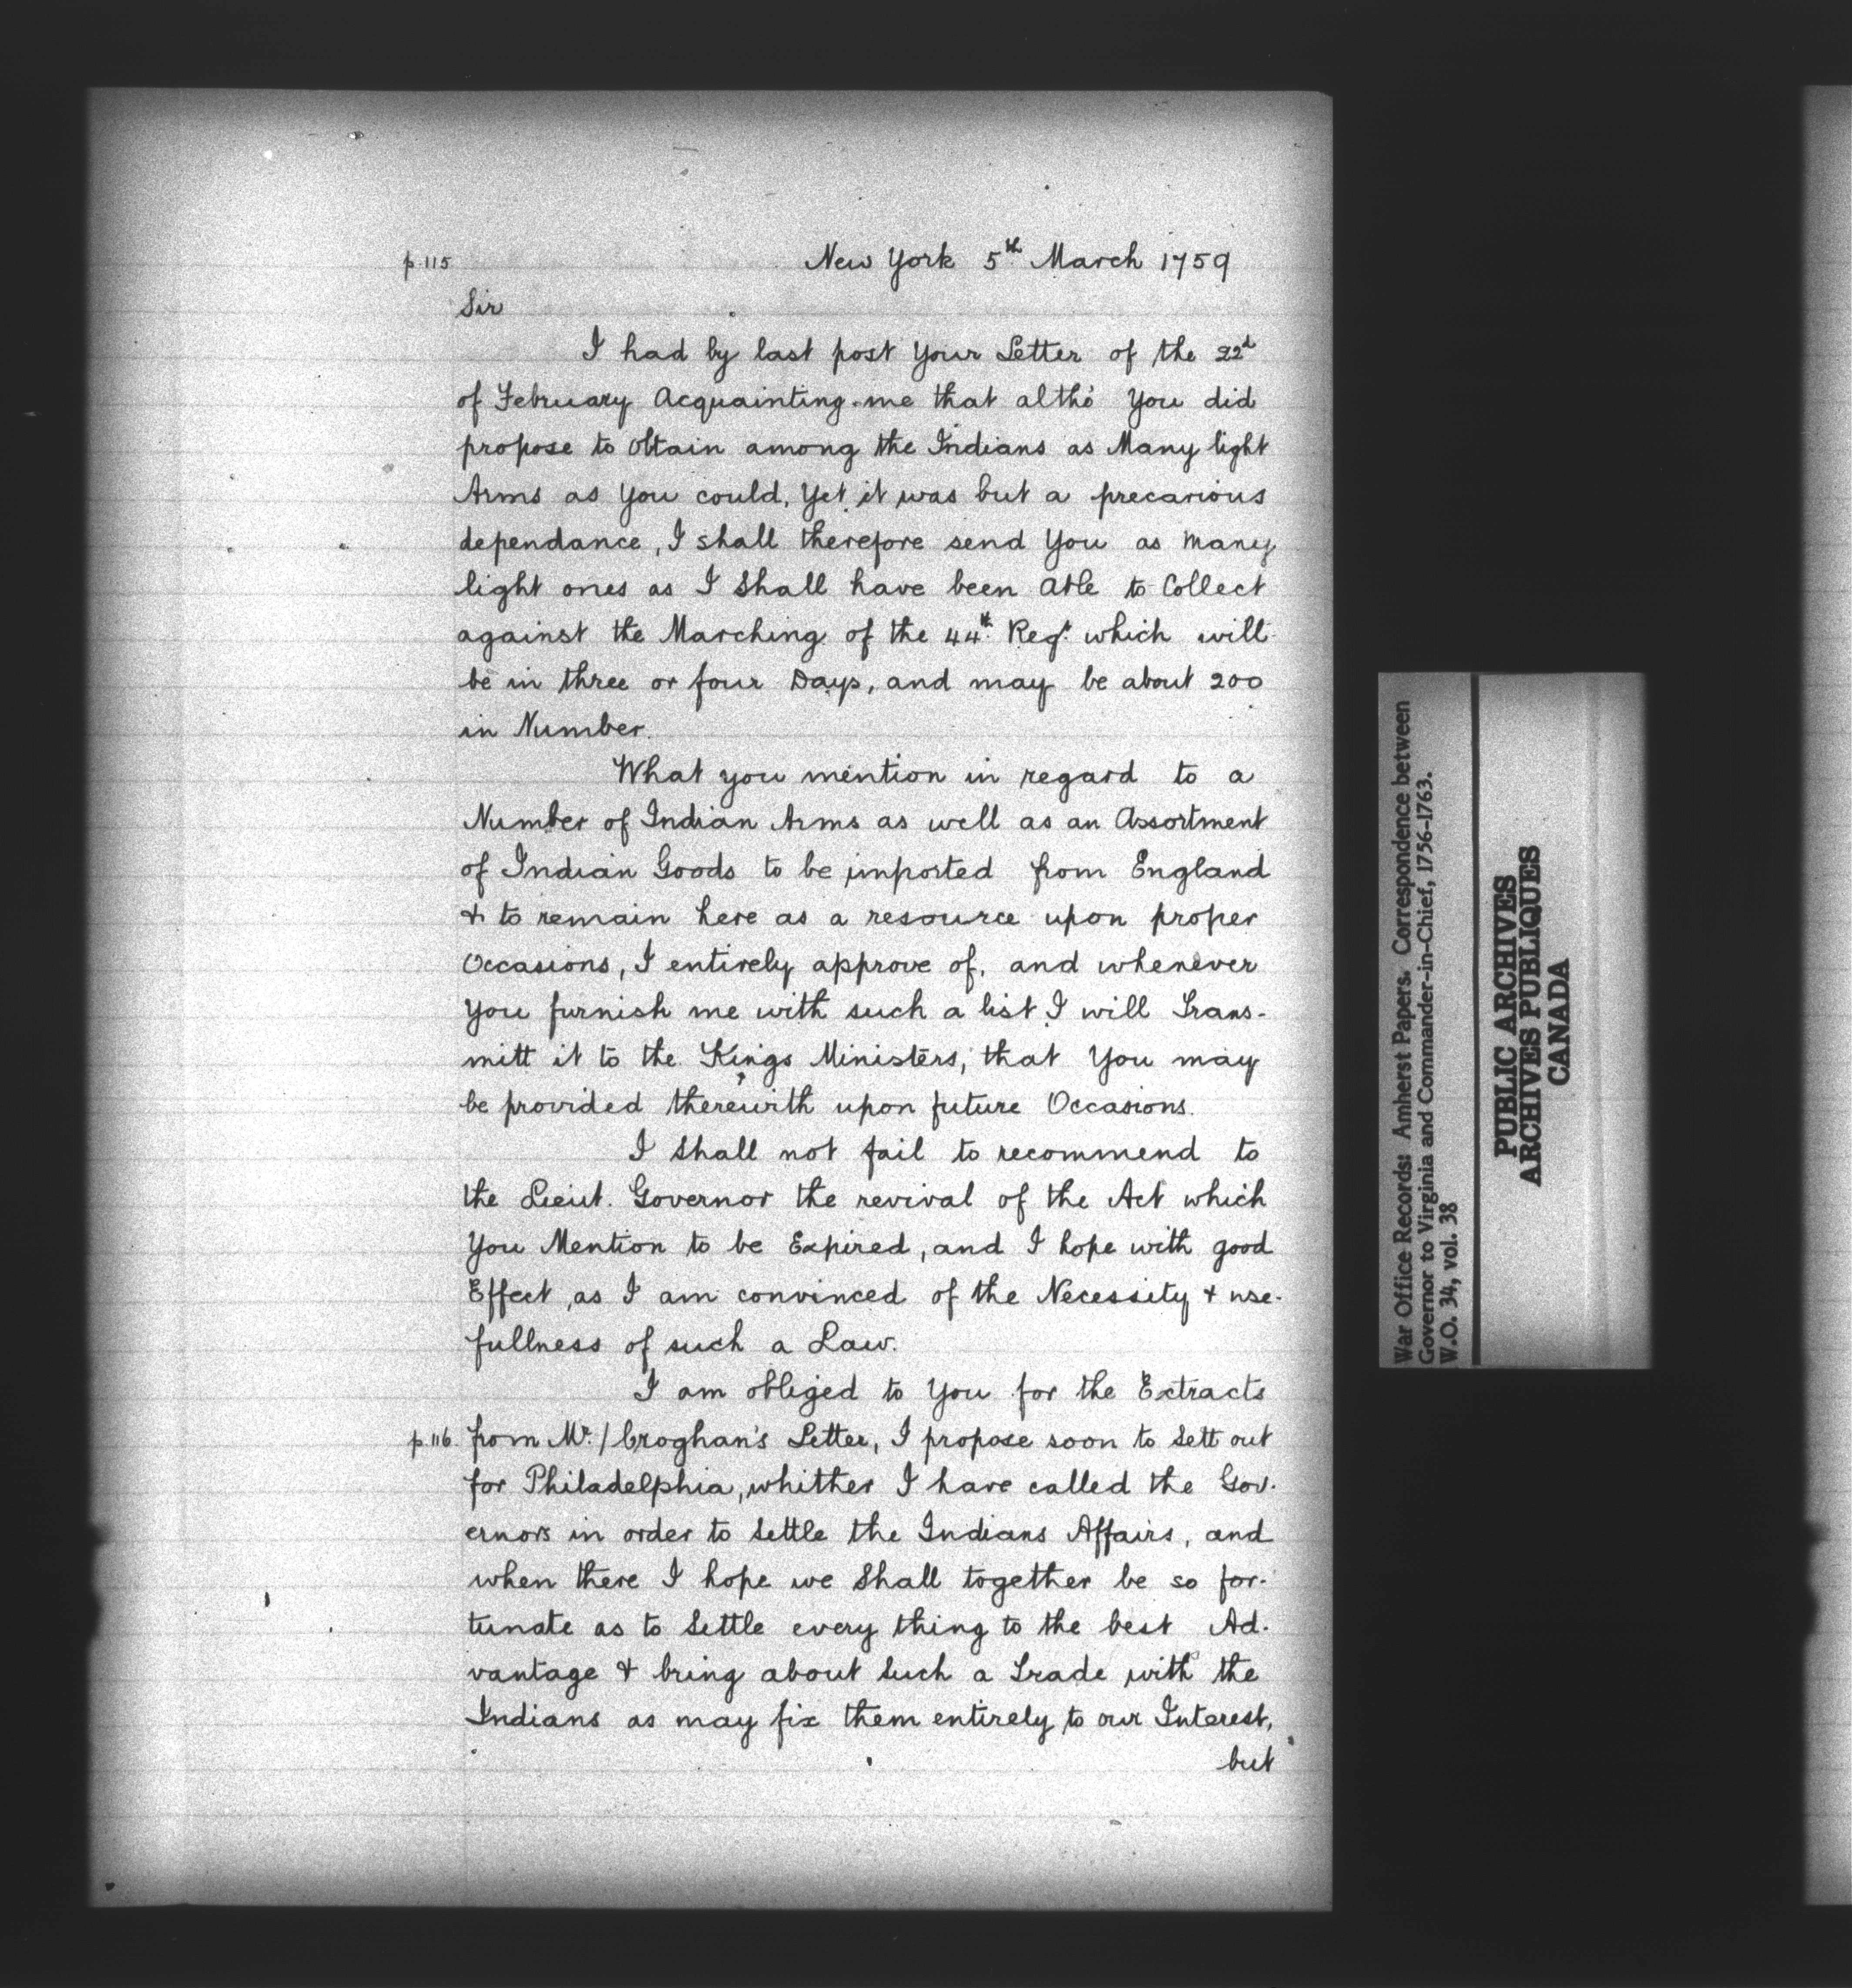 p.115 New York 5th March 1759
Sir
I had by last post Your Letter of the 22d
of February Acquainting me that altho' You did
propose to Obtain among the Indians as Many light
Arms as You could, Yet it was but a precarious
dependance, I shall therefore send You as many
light ones as I Shall have been Able to Collect
against the Marching of the 44th Regt. which will
be in three or four Days, and may be about 200
in Number.
What you mention in regard to a
Number of Indian Arms as well as an Assortment
of Indian Goods to be imported from England
& to remain here as a resource upon proper
Occasions, I entirely approve of, and whenever
You furnish me with such a list I will Trans-
mitt it to the Kings Ministers, that You may
be provided therewith upon future Occasions.
I Shall not fail to recommend to
the Lieut. Governor the revival of the Act which
You Mention to be Expired, and I hope with good
Effect, as I am convinced of the Necessity & use-
fullness of such a Law.
I am obliged to You for the Extracts
p.116. from Mr. / Croghan's Letter, I propose soon to Sett out
for Philadelphia, whither I have called the Gov-
ernors in order to Settle the Indians Affairs, and
when there I hope we Shall together be so for-
tunate as to Settle every thing to the best Ad-
vantage & bring about Such a Trade with the
Indians as may fix them entirely to our Interest,
but
War Office Records: Amherst Papers. Correspondence between
Governor to Virginia and Commander-in-Chief, 1756-1763.
W.O. 34, vol. 38
PUBLIC ARCHIVES
ARCHIVES PUBLIQUES
CANADA